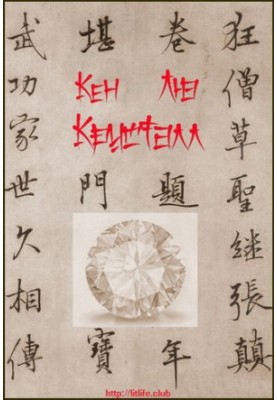 狂僧草聖繼張顛
卷
題
年
堪
門
寶
武功家世久相傳
Кен
http://litlife.club